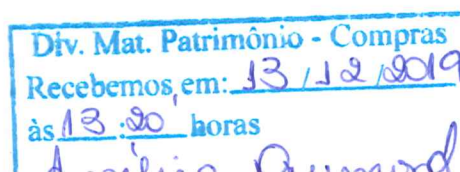 Div. Mat. Patrimônio - Compras
Recebemos em: 13 / 12 / 2019
às 13:20 horas